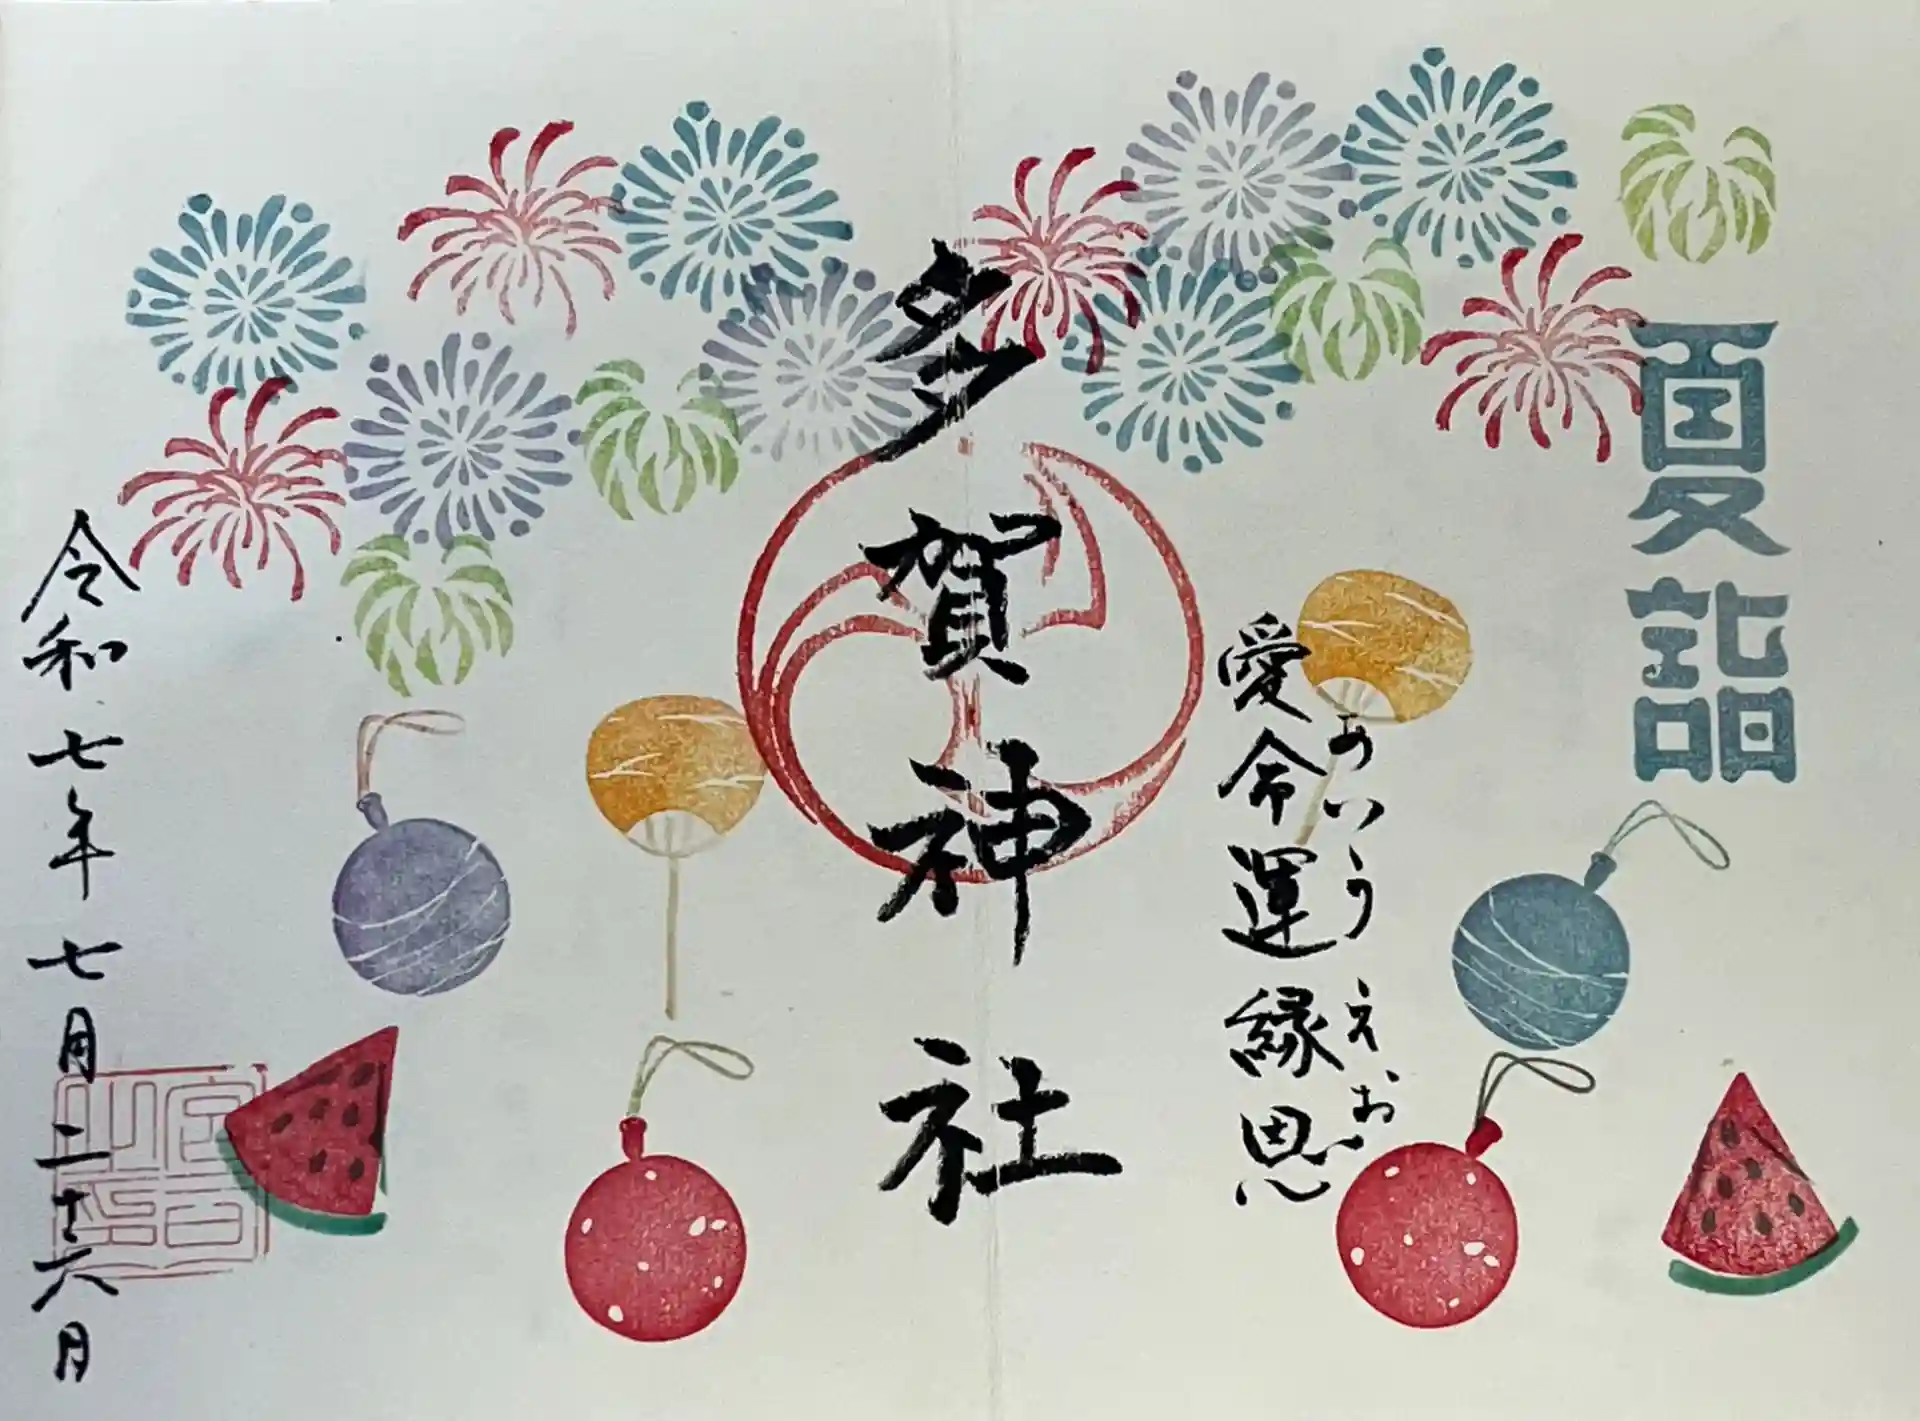 夏詣
あいうえお
愛命運縁恩
多賀神社
令和七年七月二十六日